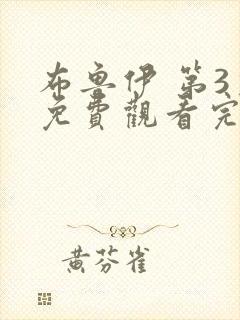 布魯伊 第3
免費觀看完
黃芬雀